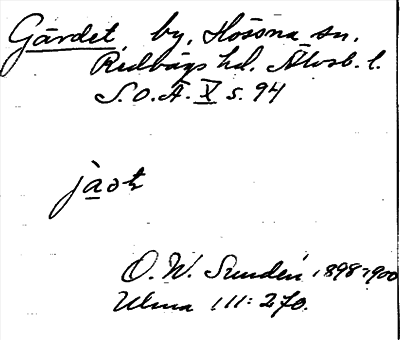 Gärdet, by, Hössna sn.
Redvägs hd. Älvsb. l.
S.O.Ä. X s. 94
O. W. Sundén 1898-1900
Ulma 111:270.